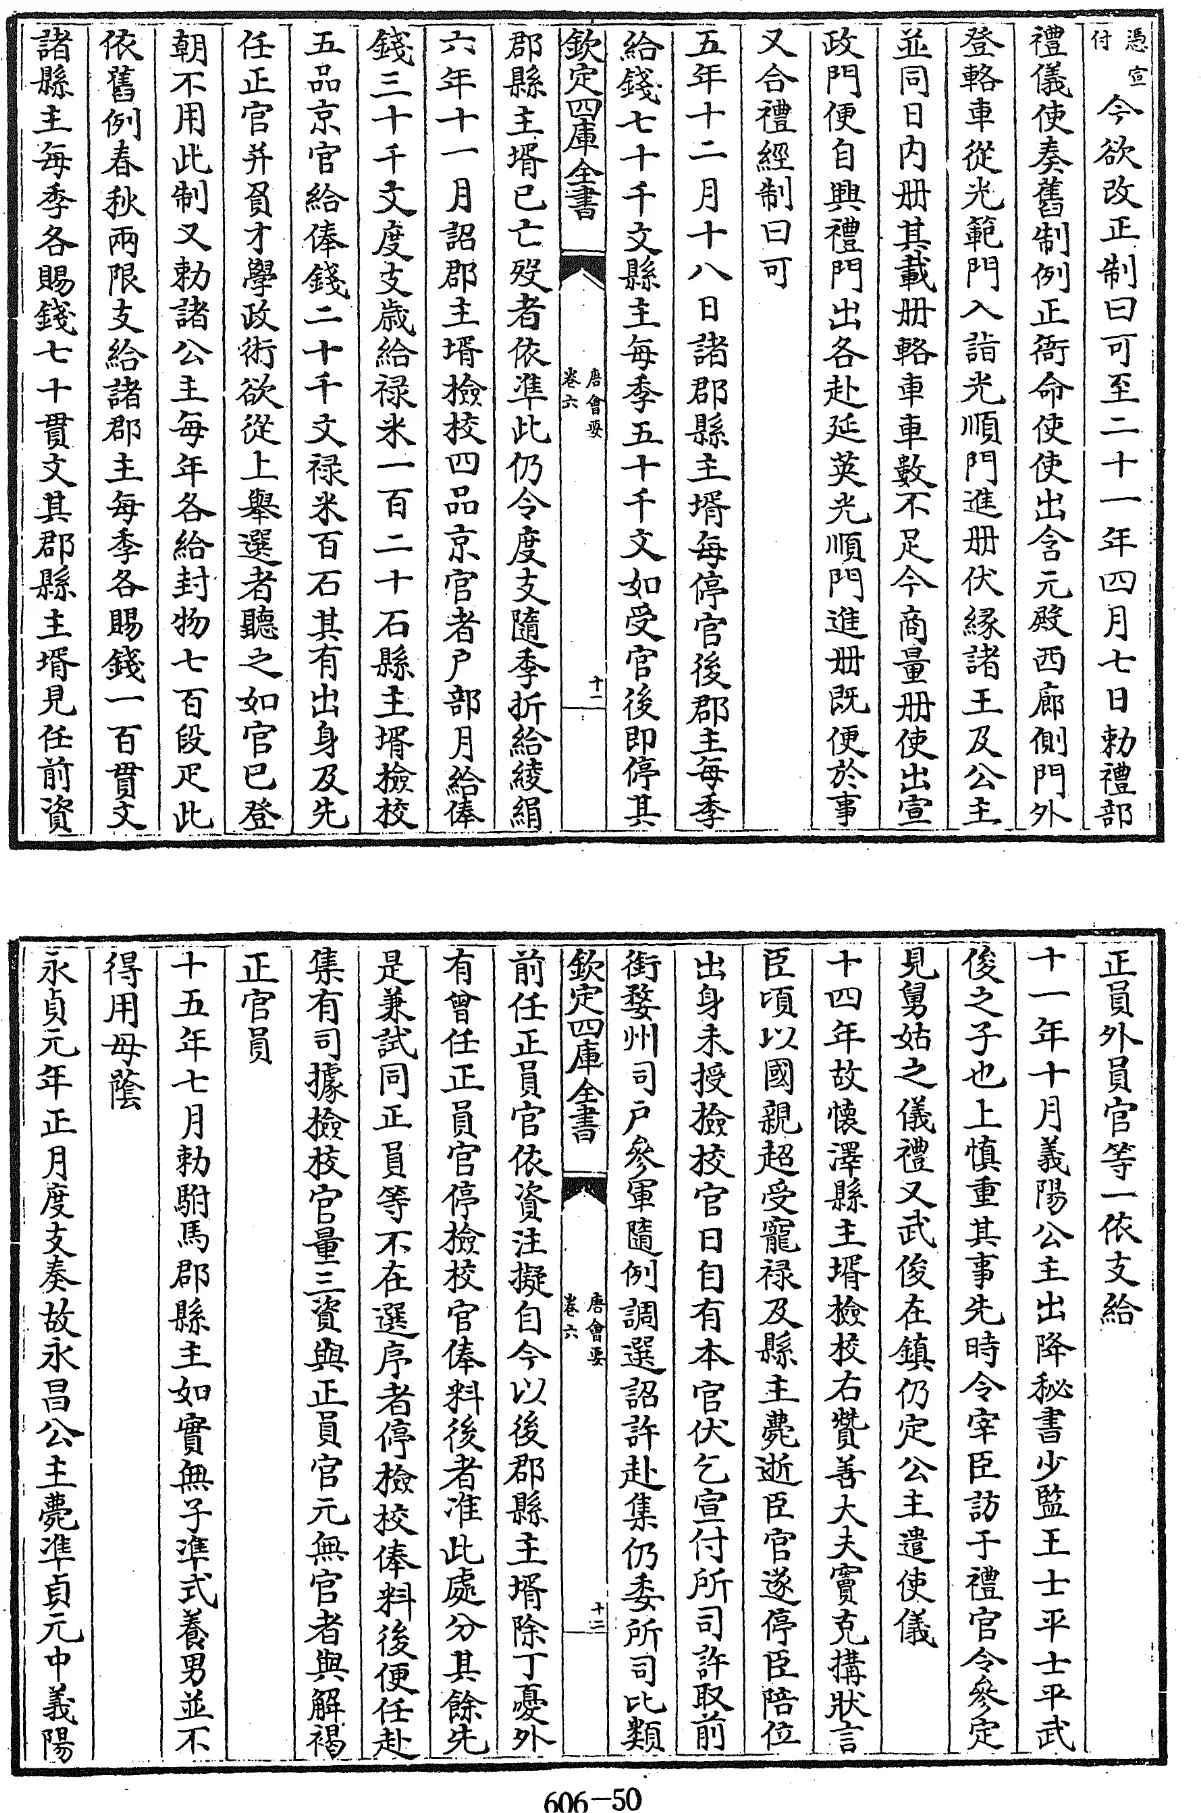 憑宣付今欲改正制曰可至二十一年四月七日勅禮部
禮儀使奏舊制例正衙命使使出含元殿西廊側門外
登輅車從光範門入詣光順門進册伏縁諸王及公主
並同日内册其載册輅車車數不足今商量册使出宣
政門便自興禮門出各赴延英光順門進册既便於事
又合禮經制曰可
五年十二月十八日諸郡縣主壻每停官後郡主每季
給錢七十千文縣主每季五十千文如受官後即停其
欽定四庫全書
唐會要
卷六
十二
郡縣主壻已亡歿者依準此仍令度支隨季折給綾絹
六年十一月詔郡主壻檢校四品京官者户部月給俸
錢三十千文度支歲給禄米一百二十石縣主壻檢校
五品京官給俸錢二十千文禄米百石其有出身及先
任正官并負才學政術欲從上舉選者聽之如官已登
朝不用此制又勅諸公主每年各給封物七百段疋此
依舊例春秋兩限支給諸郡主每季各賜錢一百貫文
諸縣主每季各賜錢七十貫文其郡縣主壻見任前資
正員外員官等一依支給
十一年十月義陽公主出降秘書少監王士平士平武
俊之子也上慎重其事先時令宰臣訪于禮官令參定
見舅姑之儀禮又武俊在鎮仍定公主遣使儀
十四年故懷澤縣主壻檢校右贊善大夫竇克搆狀言
臣頃以國親超受寵禄及縣主薨逝臣官遂停臣陪位
出身未授檢校官日自有本官伏乞宣付所司許取前
銜婺州司户參軍隨例調選詔許赴集仍委所司比類
欽定四庫全書
唐會要
卷六
十三
前任正員官依資注擬自今以後郡縣主壻除丁憂外
有曾任正員官停檢校官俸料後者准此處分其餘先
是兼試同正員等不在選序者停檢校俸料後便任赴
集有司據檢校官量三資與正員官元無官者與解褐
正官員
十五年七月勅駙馬郡縣主如實無子準式養男並不
得用母蔭
永貞元年正月度支奏故永昌公主薨準貞元中義陽
606-50